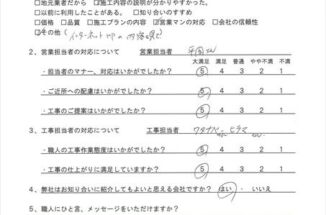 □地元業者だから □施工内容の説明が分かりやすかった。
□以前に利用したことがある。 □知り合いのすすめ
□価格 □品質 □施工プランの内容 □営業マンの対応 □会社の信頼性
☑その他（インターネット
2、営業担当者の対応について 営業担当者
大満足 満足 普通 やや不満 不満
・担当者のマナー、対応はいかがでしたか？ 5 4 3 2 1
・ご近所への配慮はいかがでしたか？ 5 4 3 2 1
・工事のご提案はいかがでしたか？ 5 4 3 2 1
3、工事担当者の対応について 工事担当者 ワタナベ、ヒラマ
大満足 満足 普通 やや不満 不満
・職人の工事作業態度はいかがでしたか？ 5 4 3 2 1
・工事の仕上がりに満足していますか？ 5 4 3 2 1
4、弊社はお知り合いに紹介してもよいと思える会社ですか？ はい ・ いいえ
5、職人にひと言、メッセージをいただけますか？